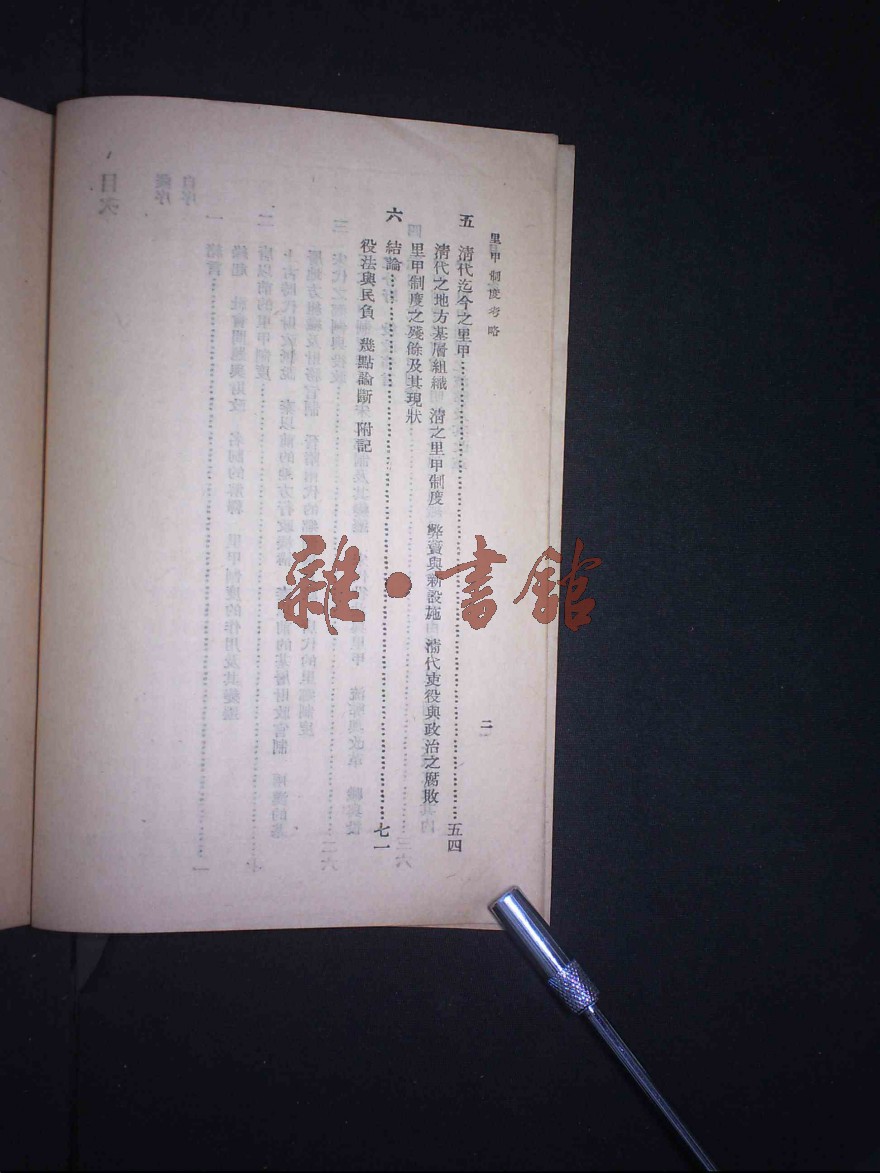 里甲制度考略
二
五 清代迄今之里甲……五四
清代之地方基層組織 清之里甲制度 弊竇與新設施 清代吏役與政治之腐敗
里甲制度之殘餘及其現狀
六 結論……七一
役法與民負 幾點論斷 附記
雜·書館